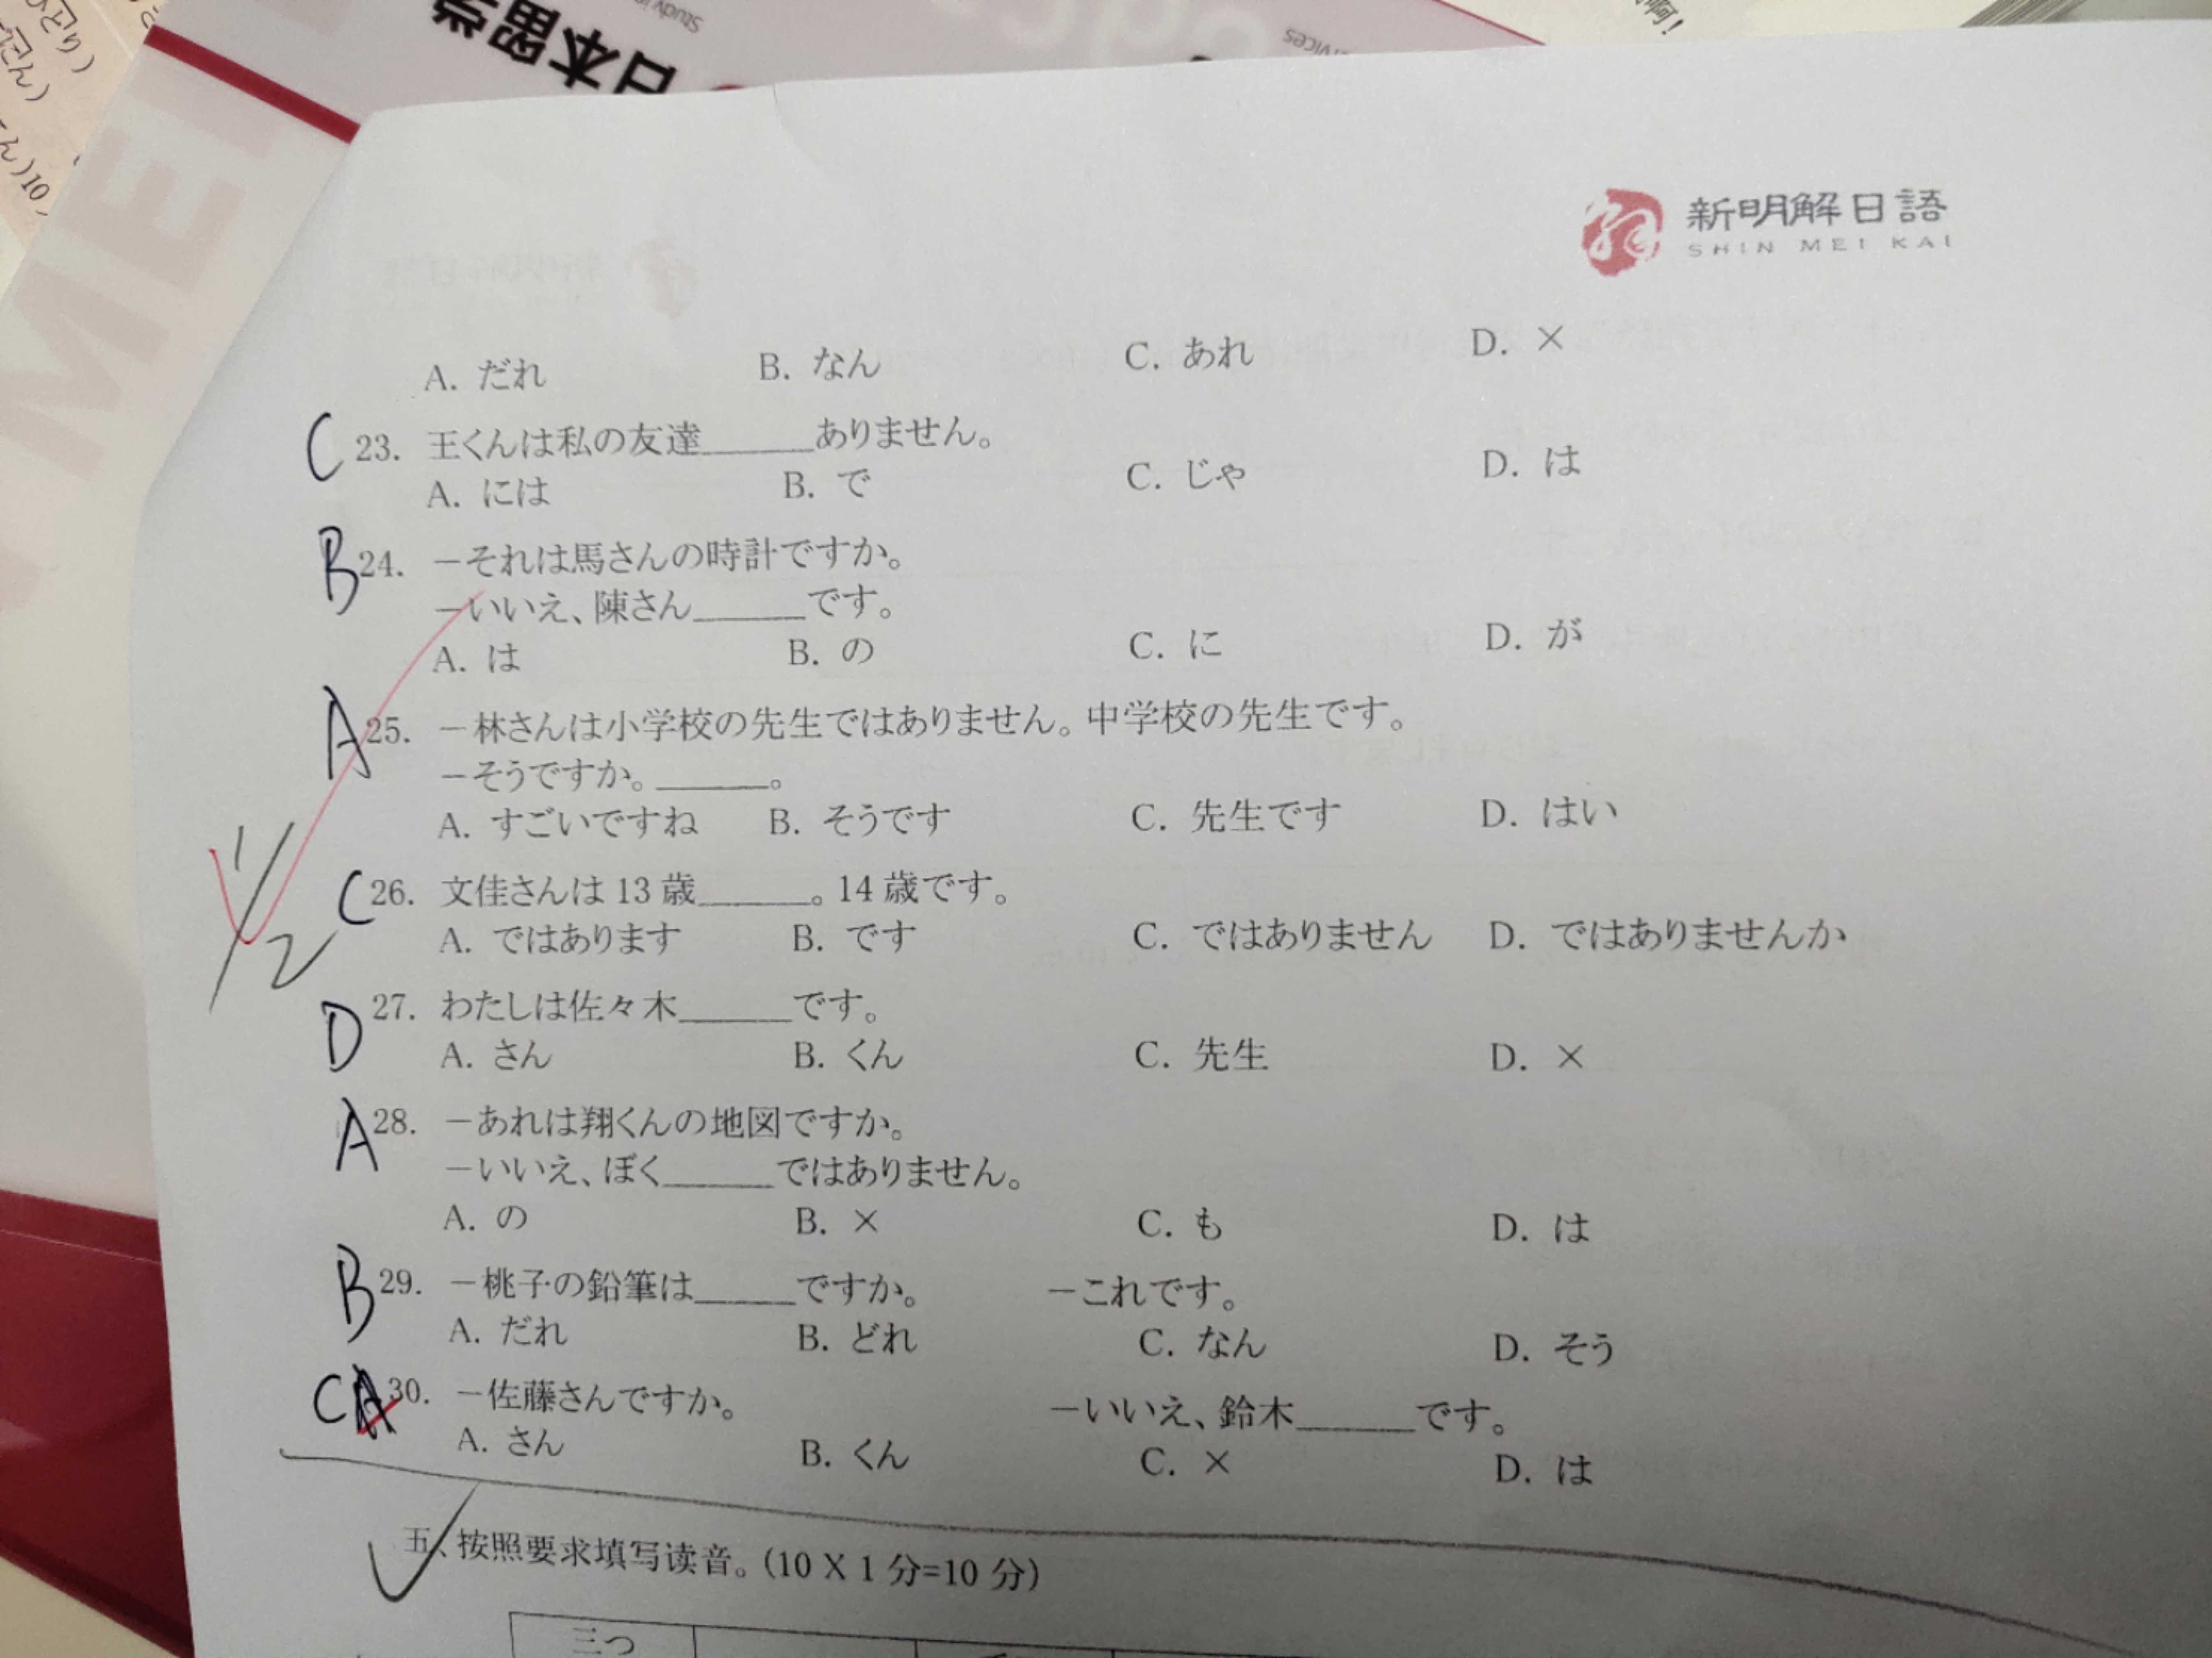 日本留学
Study in
新明解日語
SHIN MEI KAI
A. だれ B. なん C. あれ D. ×
C 23. 王くんは私の友達______ありません。
A. には B. で C. じゃ D. は
B 24. －それは馬さんの時計ですか。
－いいえ、陳さん______です。
A. は B. の C. に D. が
A 25. －林さんは小学校の先生ではありません。中学校の先生です。
－そうですか。______。
A. すごいですね B. そうです C. 先生です D. はい
C 26. 文佳さんは 13 歳______。14 歳です。
A. ではあります B. です C. ではありません D. ではありませんか
D 27. わたしは佐々木______です。
A. さん B. くん C. 先生 D. ×
A 28. －あれは翔くんの地図ですか。
－いいえ、ぼく______ではありません。
A. の B. × C. も D. は
B 29. －桃子の鉛筆は______ですか。 －これです。
A. だれ B. どれ C. なん D. そう
C 30. －佐藤さんですか。 －いいえ、鈴木______です。
A. さん B. くん C. × D. は
五、按照要求填写读音。(10 X 1 分=10 分)
三つ